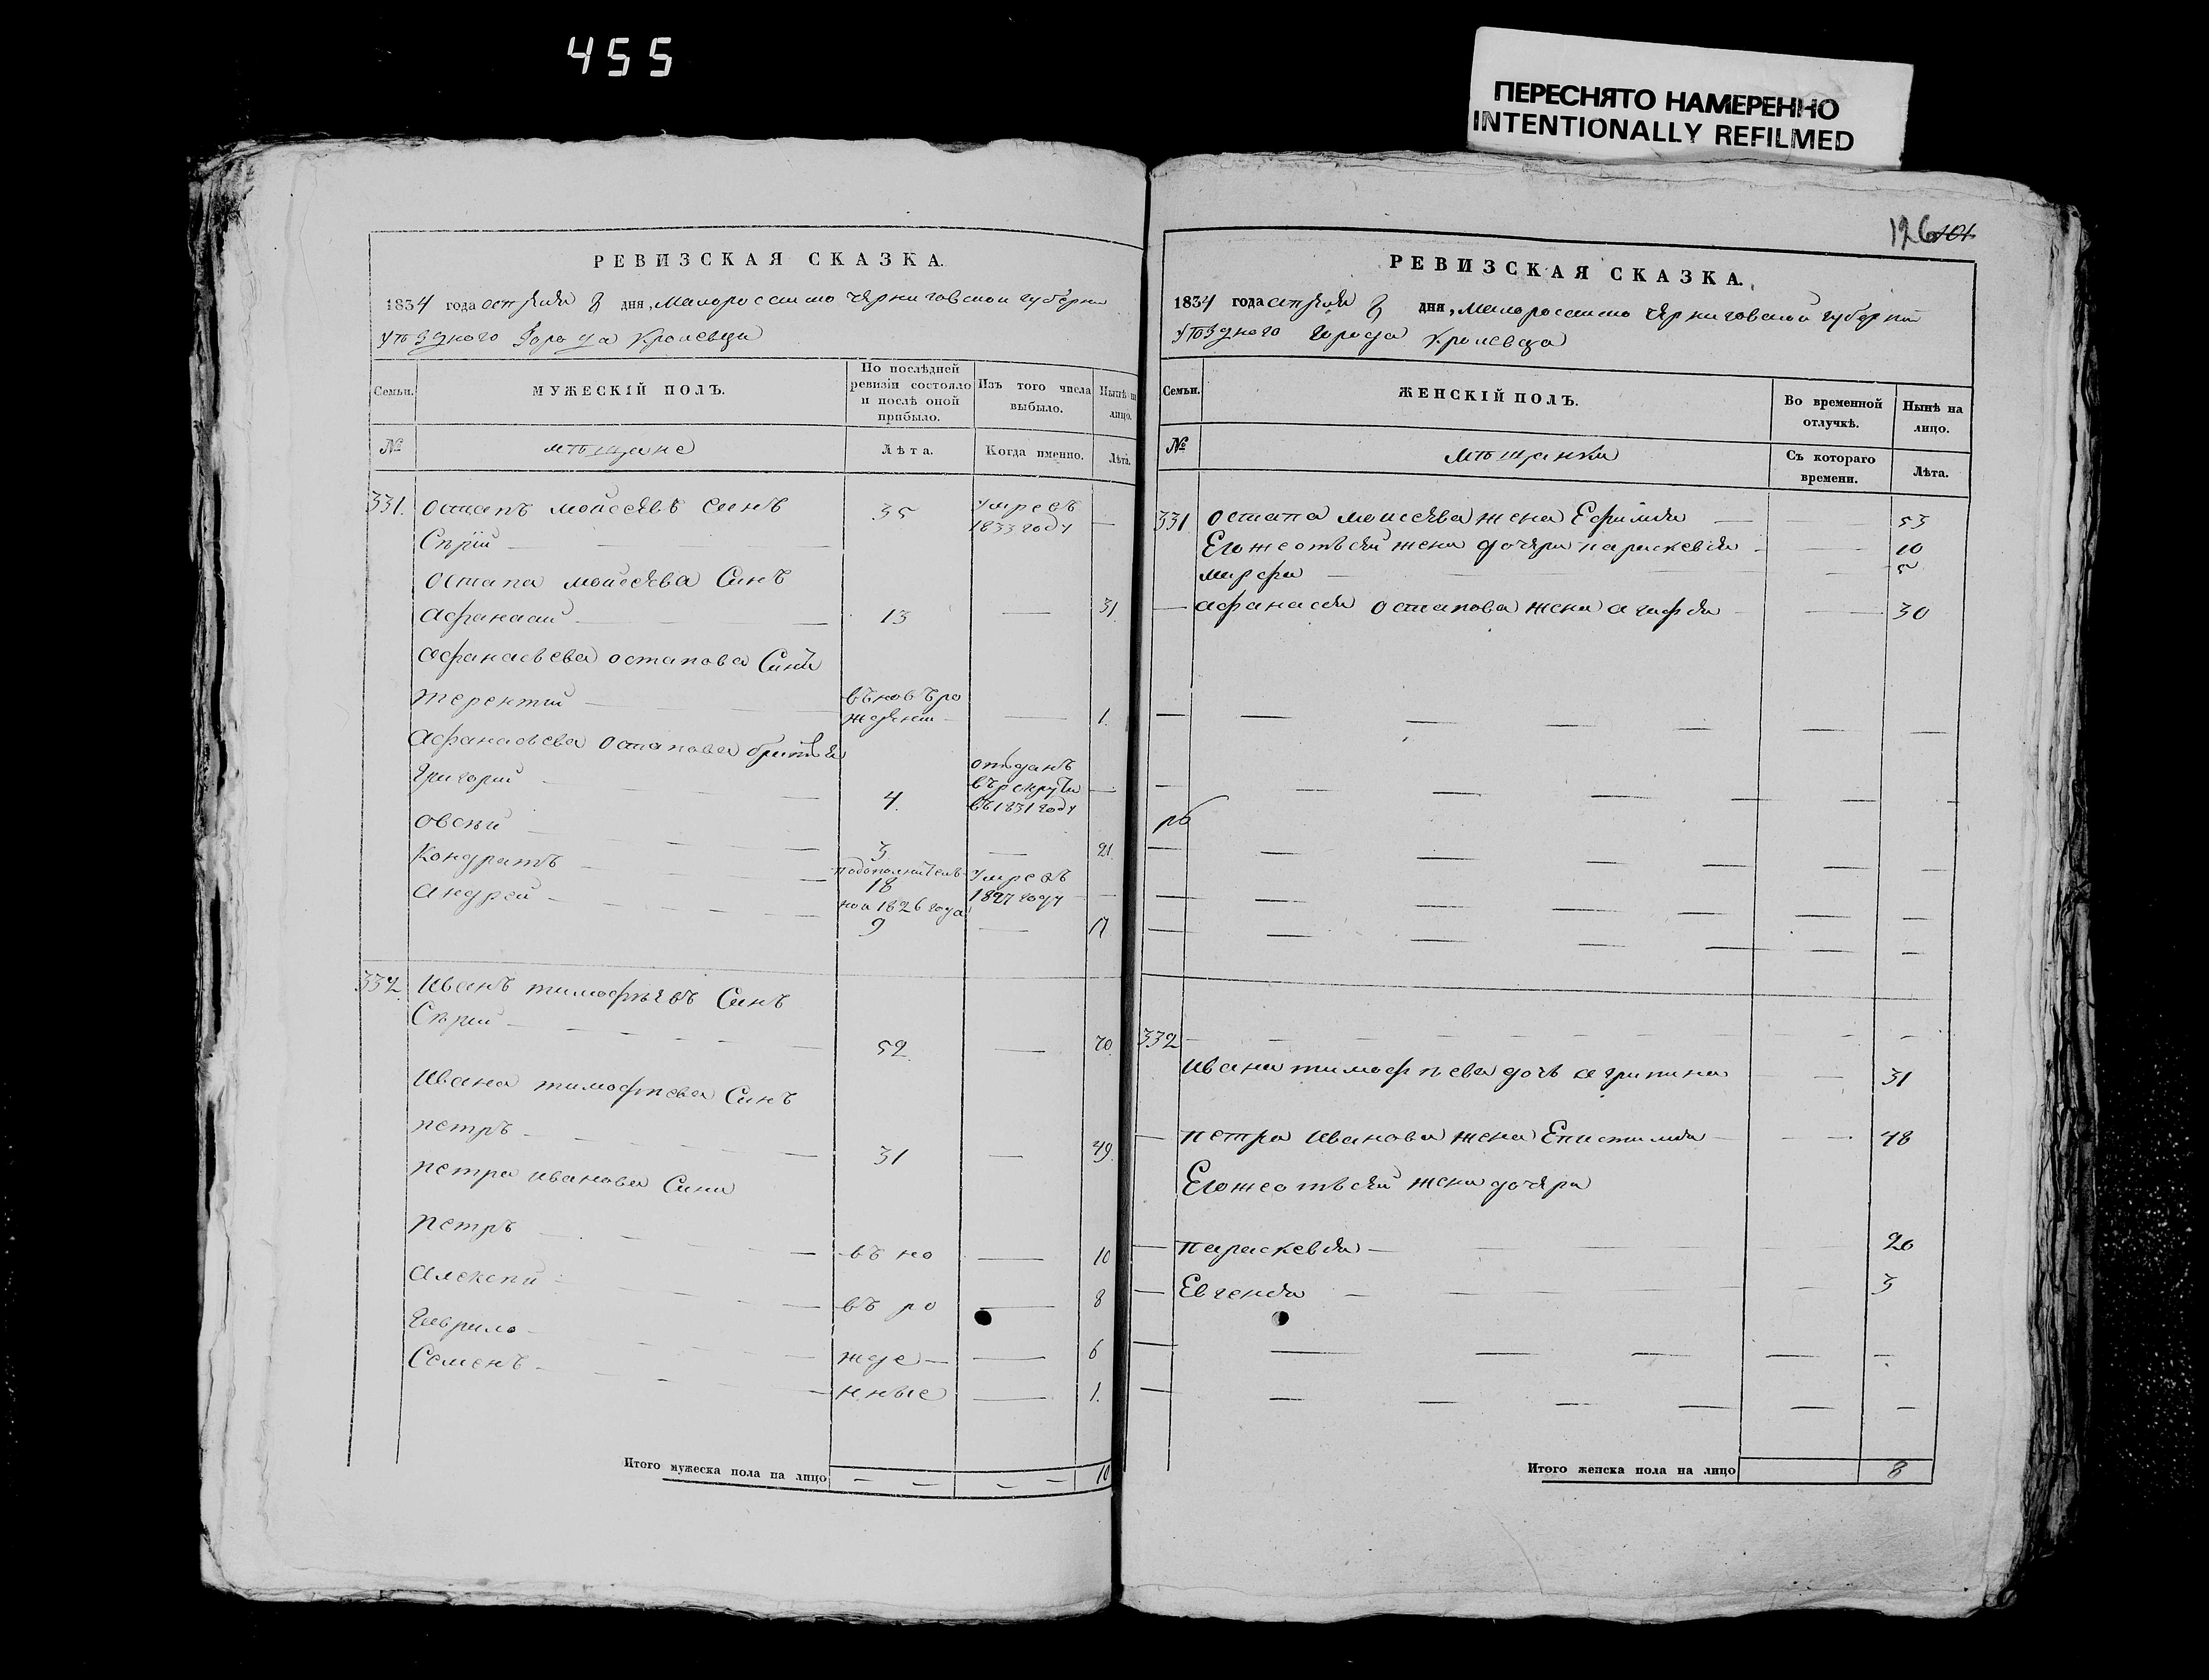 455
ПЕРЕСНЯТО НАМЕРЕННО
INTENTIONALLY REFILMED
РЕВИЗСКАЯ СКАЗКА.
1834 года апреля 8 дня, Малороссийско черниговской губерни
уѣздного Города Кролевца
Семьи.
МУЖЕСКІЙ ПОЛЪ.
По послѣдней ревизіи состояло и послѣ оной прибыло.
Изъ того числа выбыло.
Нынѣ на лицо.
№
мѣщане
Лѣта.
Когда именно.
Лѣта.
331. остапъ моисеевъ синъ
Сѣрій 35 умреъ 1833 году
остапа моисеева Синъ
афанасий 13 31.
афанасьева остапова Синъ
терентий въновъ рожденни 1.
афанасьева остапова братья
григорий 4. отданъ въ рекруты въ 1831 году
овсѣй 3 21
Кондратъ подополнительной 1826 года 18 умреъ 1827 году
андрей 9 17
332. Иванъ тимофѣевъ Синъ
Сѣрий 52 70.
Ивана тимофѣева Синъ
петръ 31 49.
петра иванова Сини
петръ въ но 10
алексѣй въ ро 8
Гаврило жде 6
Семенъ нные 1.
Итого мужеска пола на лицо 10
126 101
РЕВИЗСКАЯ СКАЗКА.
1834 года апреля 8 дня, Малороссийско черниговской губернии
уѣздного города Кролевца
Семьи.
ЖЕНСКІЙ ПОЛЪ.
Во временной отлучкѣ.
Нынѣ на лицо.
№
мѣщанки
Съ котораго времени.
Лѣта.
331 остапа моисеева жена Ефимия 53
Егожеотъ сей жена дочери параскевия 10
марфа 5
афанасия остапова жена агафия 30
332
ивана тимофѣева дочь агрипина 31
петра иванова жена Епистимия 48
Егожеотъ сей жена дочери
параскевия 20
Евгения 3
Итого женска пола на лицо 8